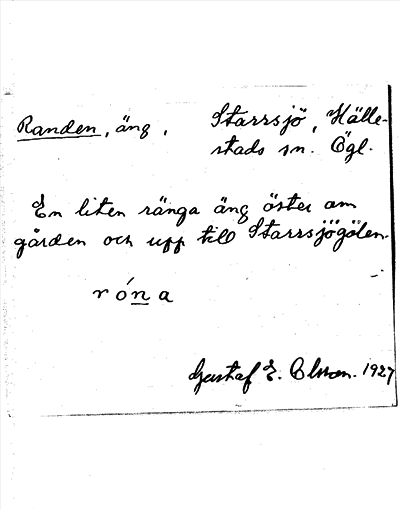 Randen, äng, Starrsjö, Hälle-
stads sn. Ögl.
En liten ränga äng öster om
gården och upp till Starrsjögölen.
róna
Gustaf E. Olsson. 1927